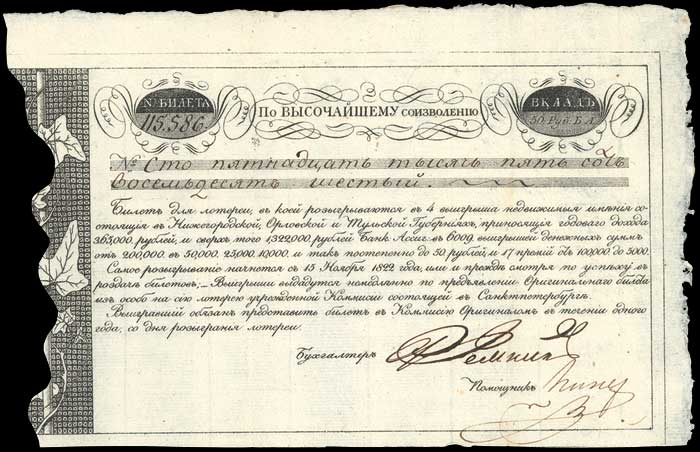 № БИЛЕТА
115.586.
По ВЫСОЧАЙШЕМУ соизволению
ВКЛАДЪ
50 Руб. Б.А.
№ Сто пятнадцать тысячь пять сотъ
восемьдесятъ шестый.
Билетъ для лотереи, въ коей розыгрываются въ 4 выигрыша недвижимыя имѣнія со-
стоящія въ Нижегородской, Орловской и Тульской Губерніяхъ, приносящія годоваго дохода
365,000 рублей, и сверхъ того 1322,000 рублей Банк. Ассиг. въ 6009. выигрышей денежныхъ суммъ
отъ 200,000. въ 50,000. 25,000, 10,000. и такъ постепенно до 50. рублей, и 17 премій отъ 100,000 до 5000.
Самое розыгрываніе начнется съ 15 Ноября 1822 года, или и прежде смотря по успѣху въ
роздачѣ билетовъ,_ Выигрыши выдадутся немедлѣнно по предъявленіи Оригинальнаго билета
изъ особо на сію лотерею учрежденной Комисіи состоящей въ Санктпетербургѣ.
Выигравшій обязанъ представить билетъ въ Комисію Оригиналомъ въ теченіи одного
года, со дня розыгранія лотереи.
Бухгалтеръ
Помощникъ